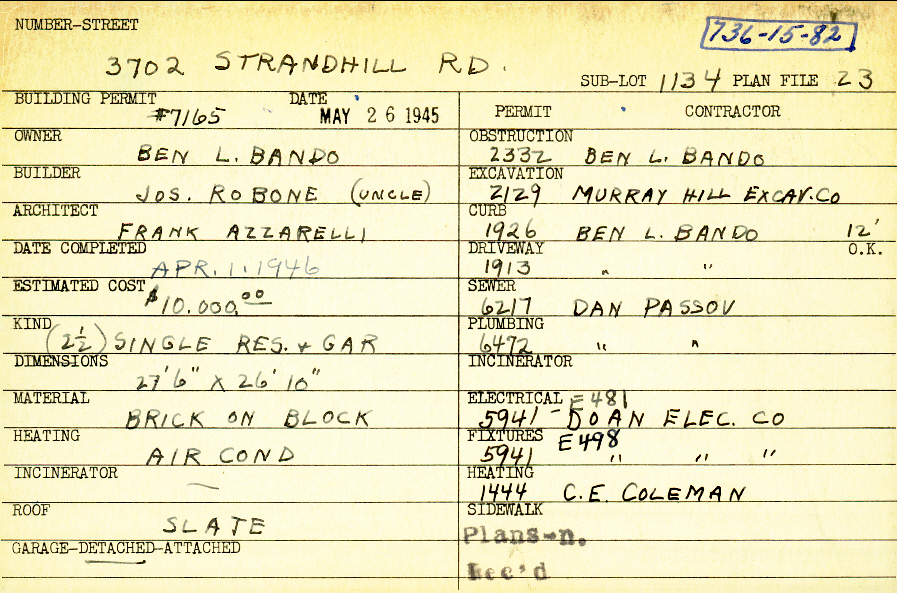 NUMBER-STREET
736-15-82
3702 STRANDHILL RD.
SUB-LOT 1134 PLAN FILE 23
BUILDING PERMIT DATE
#7165 MAY 26 1945
OWNER
BEN L. BANDO
BUILDER
JOS. ROBONE (UNCLE)
ARCHITECT
FRANK AZZARELLI
DATE COMPLETED
APR. 1. 1946
ESTIMATED COST
$10.000.00
KIND
(2½) SINGLE RES. + GAR
DIMENSIONS
27'6" X 26'10"
MATERIAL
BRICK ON BLOCK
HEATING
AIR COND
INCINERATOR
—
ROOF
SLATE
GARAGE-DETACHED-ATTACHED
PERMIT CONTRACTOR
OBSTRUCTION
2332 BEN L. BANDO
EXCAVATION
2129 MURRAY HILL EXCAV. CO
CURB
1926 BEN L. BANDO 12'
DRIVEWAY O.K.
1913 " "
SEWER
6217 DAN PASSOV
PLUMBING
6472 " "
INCINERATOR
ELECTRICAL E481
5941 - DOAN ELEC. CO
FIXTURES E498
5941 " " "
HEATING
1444 C.E. COLEMAN
SIDEWALK
Plans-n.
Rec'd